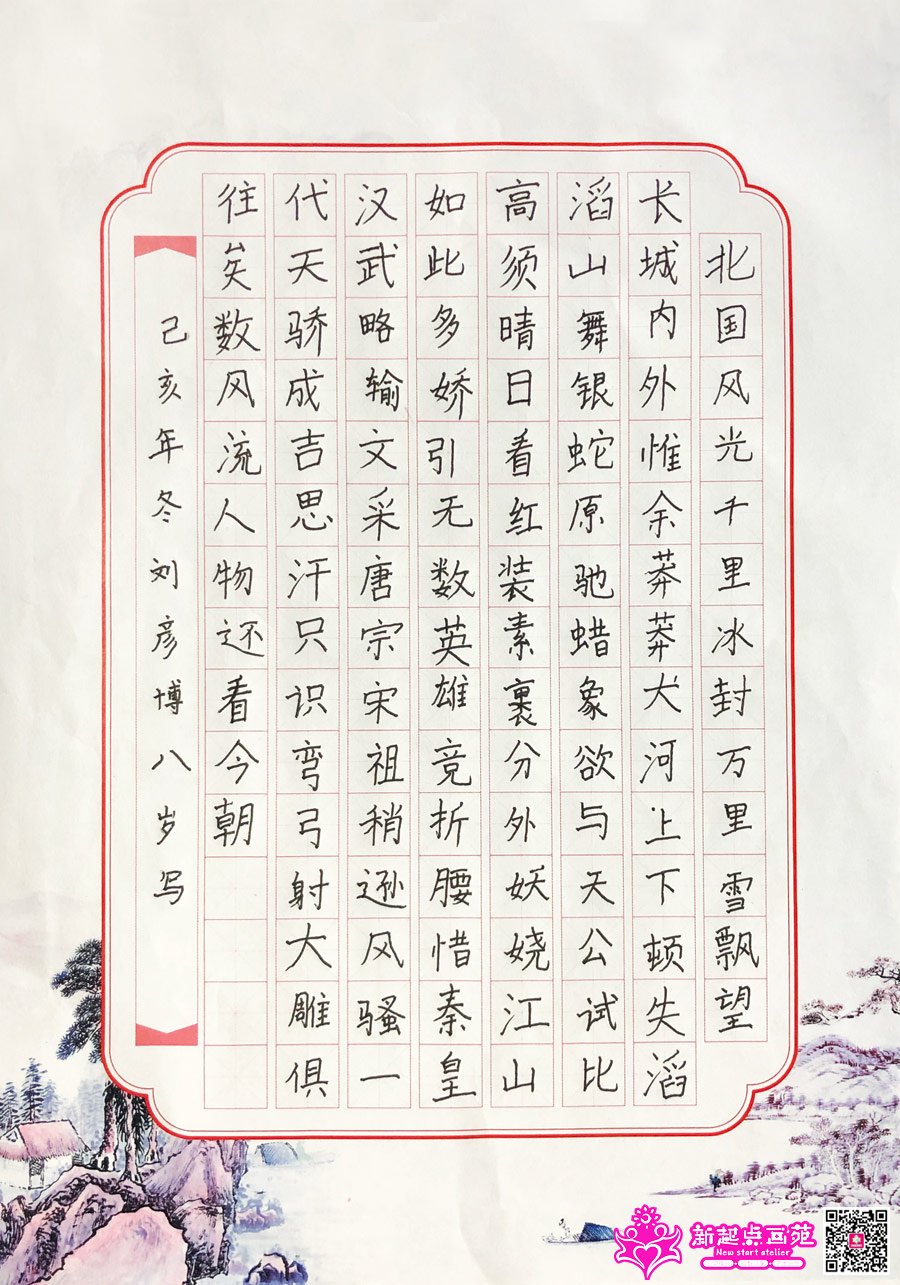 北国风光千里冰封万里雪飘望
长城内外惟余莽莽犬河上下顿失滔
滔山舞银蛇原驰蜡象欲与天公试比
高须晴日看红装素裹分外妖娆江山
如此多娇引无数英雄竞折腰惜秦皇
汉武略输文采唐宗宋祖稍逊风骚一
代天骄成吉思汗只识弯弓射大雕俱
往矣数风流人物还看今朝
己亥年冬刘彦博八岁写
新起点画苑
New start atelier